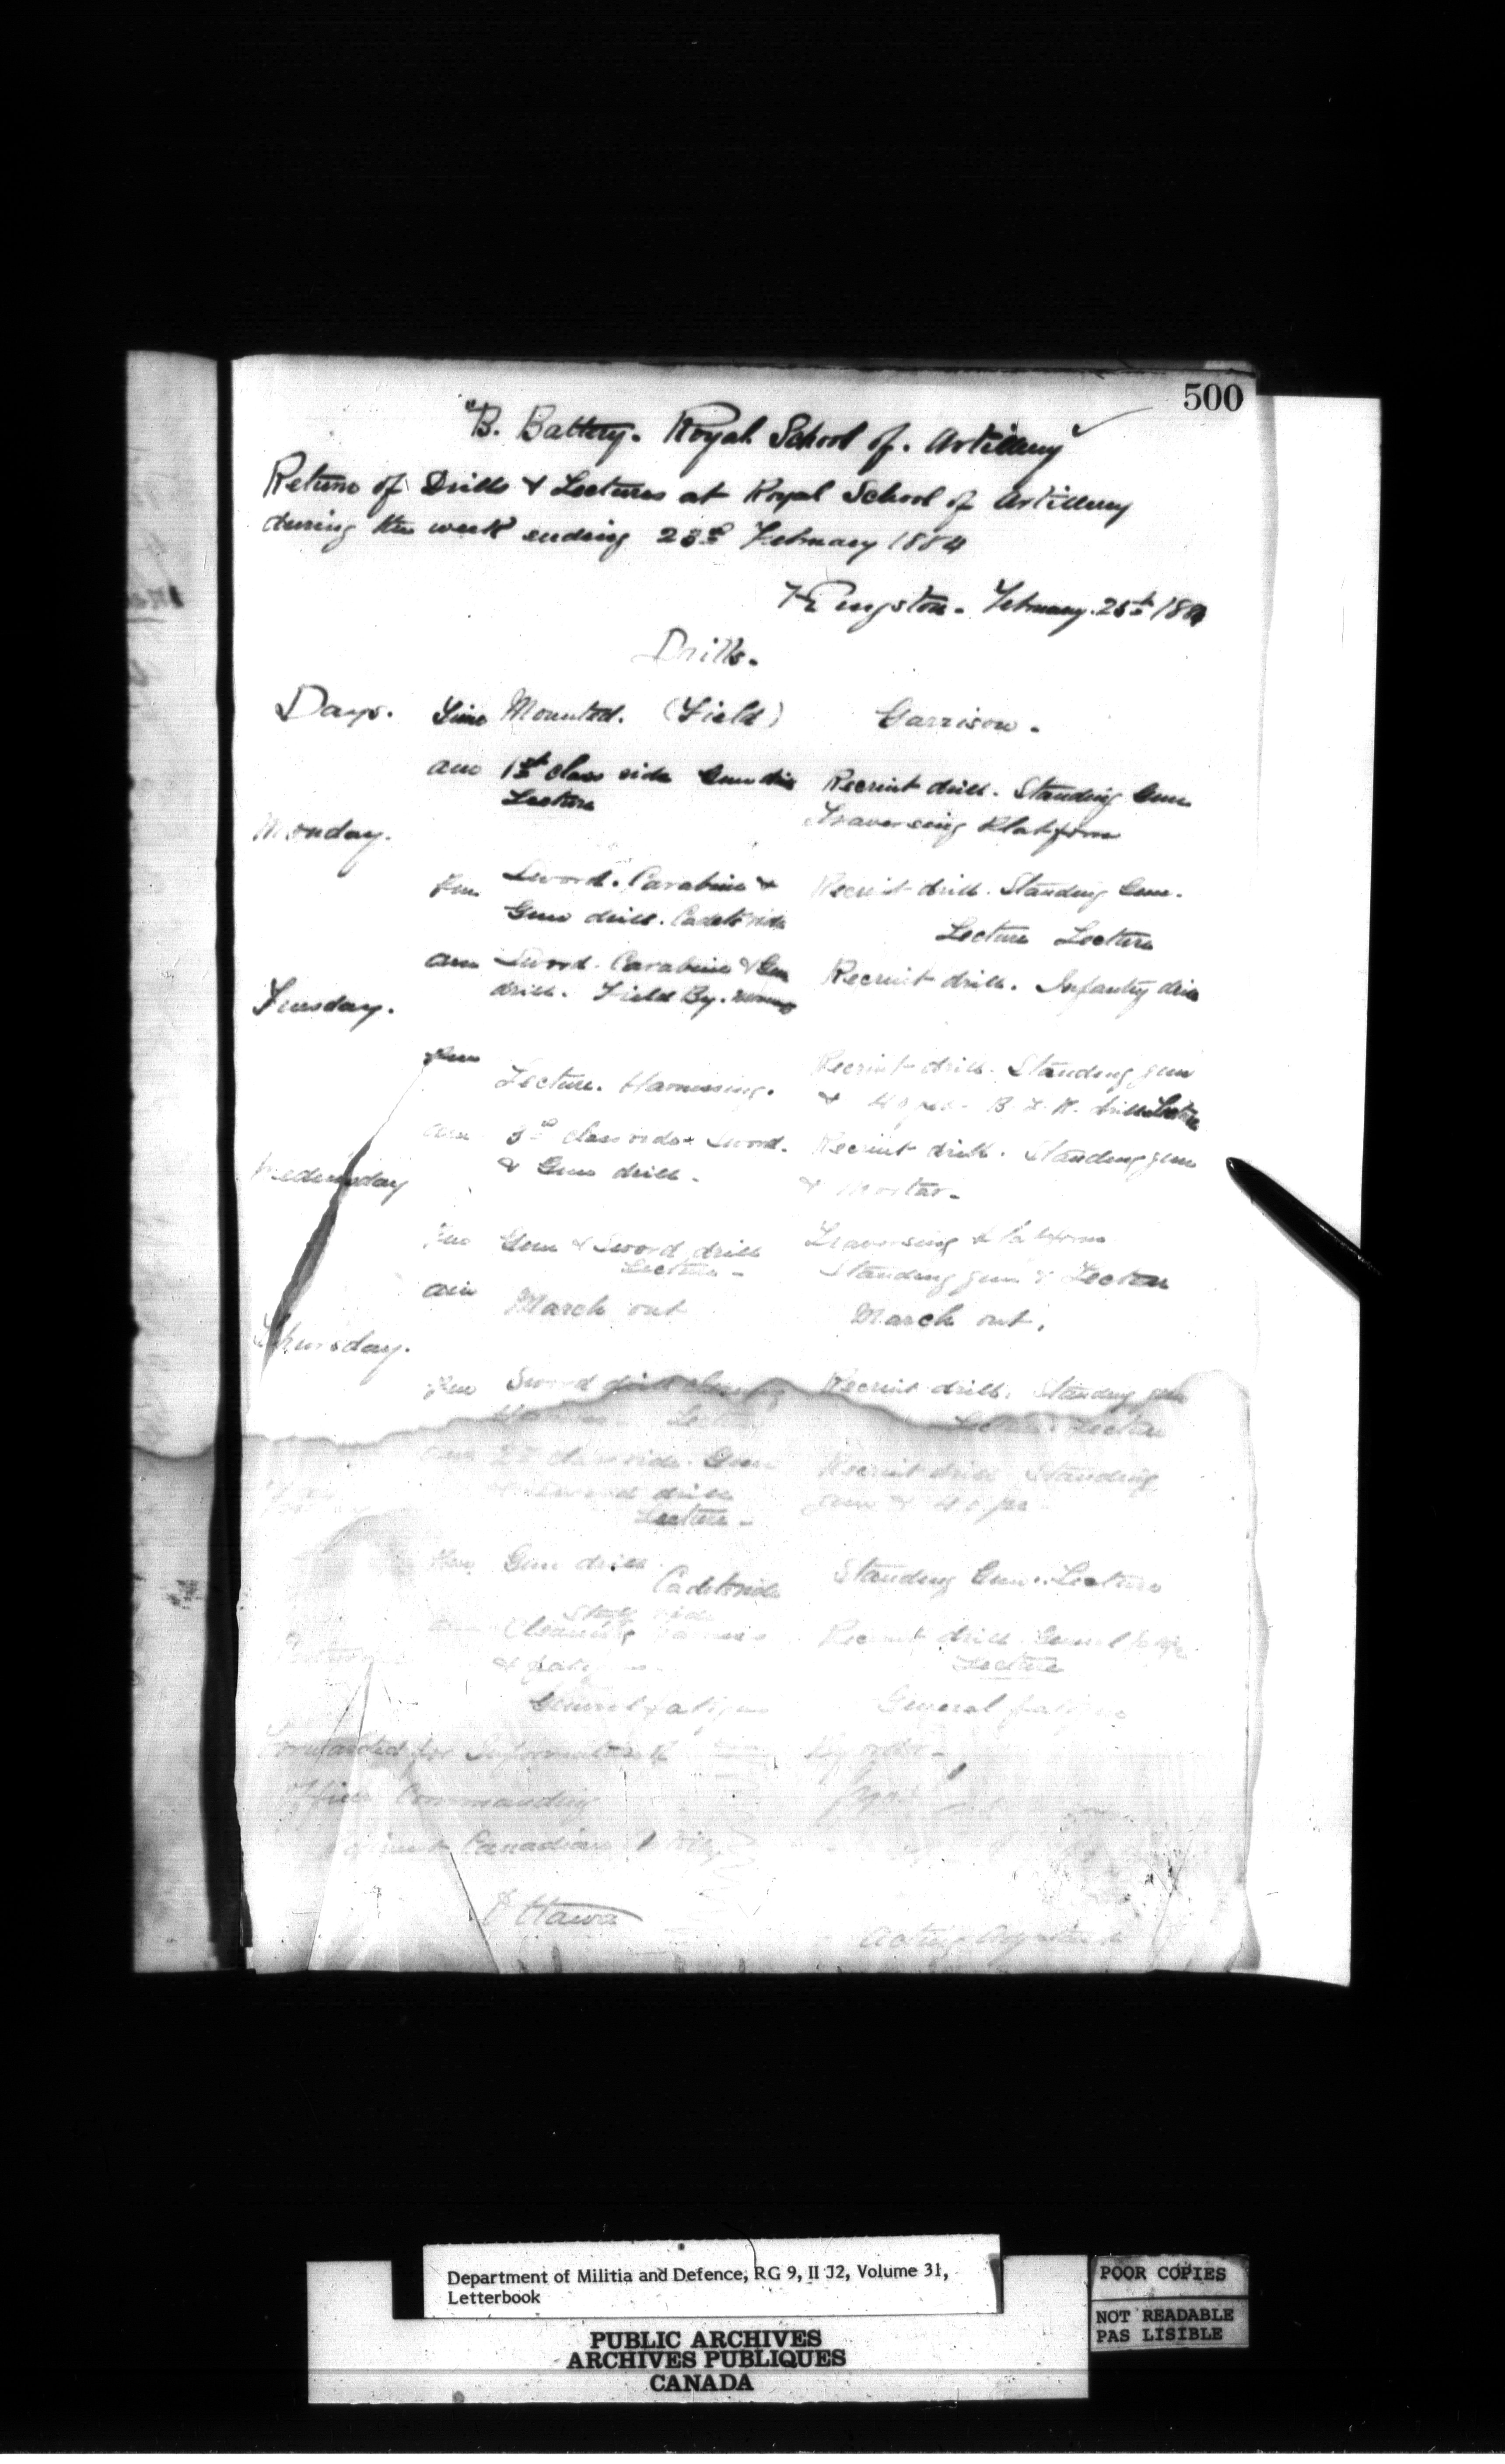 500
"B. Battery. Royal School of. Artillery"
Return of Drills & Lectures at Royal School of Artillery
during the week ending 23rd February 1884
Kingston. February. 25th 1884
Drills.
Days. Time Mounted. (Field) Garrison.
am 1st class ride Gun drill Recruit drill. Standing Gun
Lecture Traversing Platform
Monday.
pm Sword. Carabine & Recruit drill. Standing Gun.
Gun drill. Cadets ride Lecture Lecture
am Sword. Carabine & Gun Recruit drill. Infantry drill
drill. Field By.
Tuesday.
pm Lecture. Harnessing. Recruit drill. Standing gun
& 40 pr. drill Lecture
am 3rd class ride. Sword. Recruit drill. Standing gun
& Gun drill. & Mortar.
Wednesday
pm Gun & Sword drill Traversing Platform
Lecture. Standing gun & Lecture
am March out March out.
Thursday.
pm Sword drill cleaning Recruit drill. Standing gun
Harness. Lecture Lecture. Lecture
am 2nd class ride. Gun Recruit drill Standing
& Sword drill gun & 40 pr.
Lecture.
pm Gun drill. Standing Gun. Lecture
Cadets ride
ride
am Cleaning harness Recruit drill.
& Lecture
General fatigue General fatigue
Forwarded for Information of By order.
Officer Commanding
Canadian
Ottawa
Acting Adjutant
Department of Militia and Defence, RG 9, II J2, Volume 31,
Letterbook
PUBLIC ARCHIVES
ARCHIVES PUBLIQUES
CANADA
POOR COPIES
NOT READABLE
PAS LISIBLE